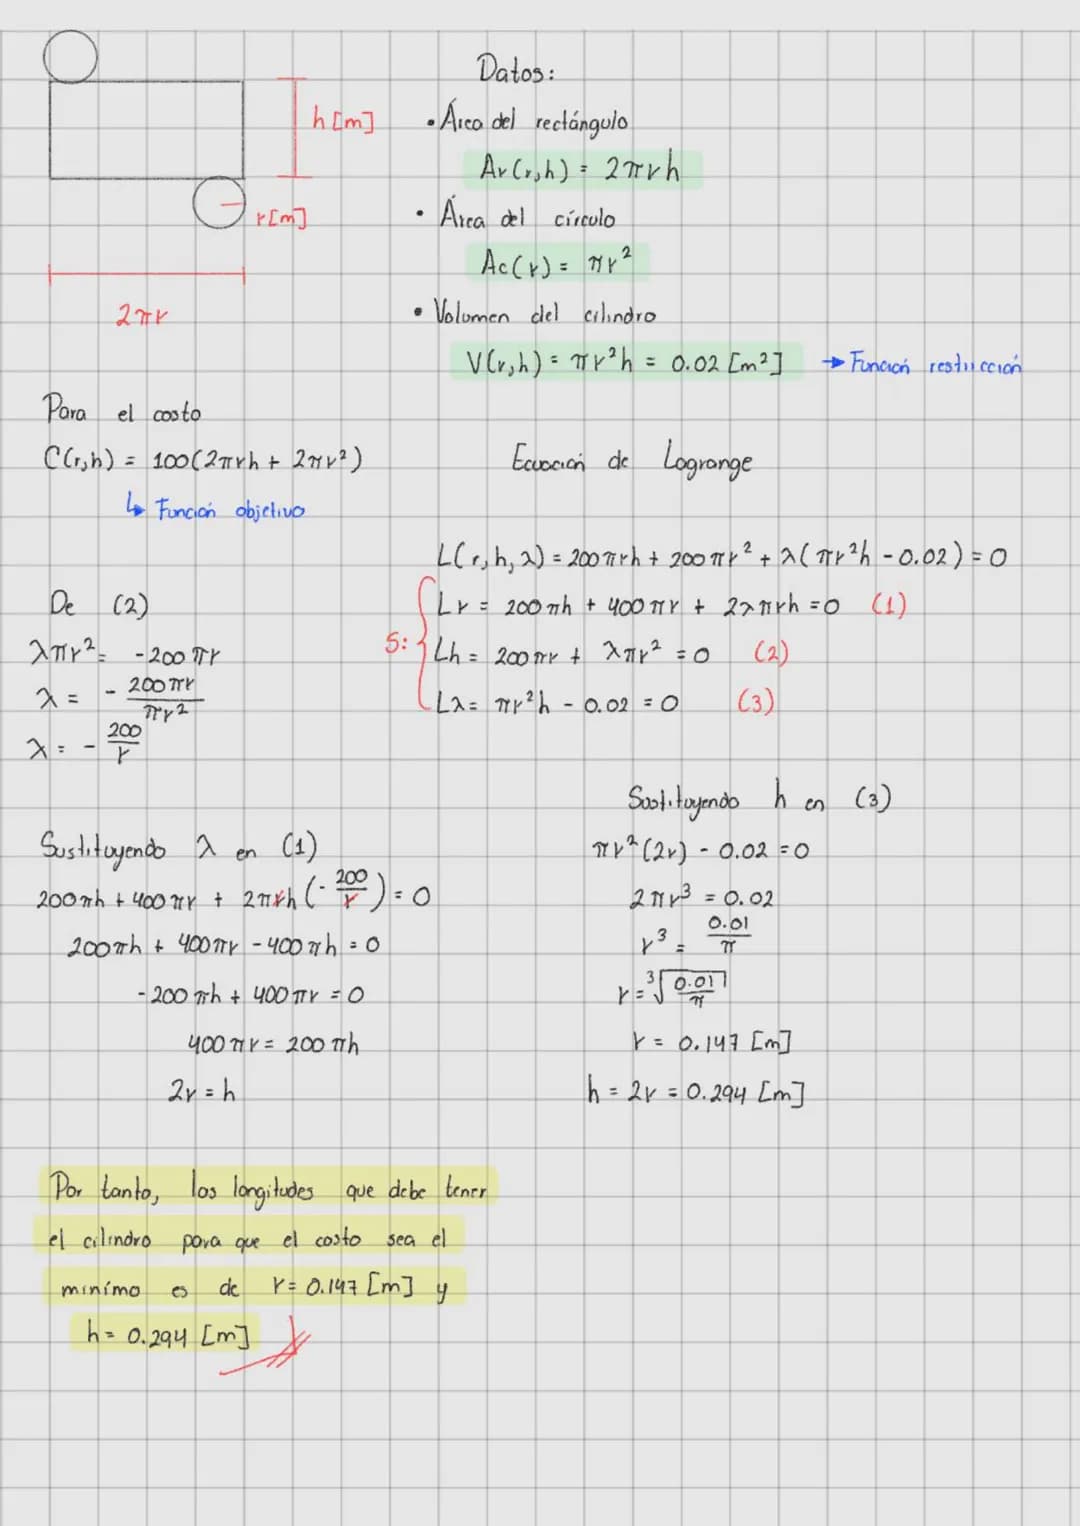 h [m]
r [m]
2πr
Datos:
• Área del rectángulo
Ar(r,h) = 2πrh
• Área del círculo
Ac(r) = πr²
• Volumen del cilindro
V(r,h) = πr²h = 0.02 [m²] → Función restricción
Para el costo
C(r,h) = 100(2πrh + 2πr²)
↳ Función objetivo
Ecuación de Lagrange
L(r,h,λ) = 200πrh + 200πr² + λ(πr²h - 0.02) = 0
S:
Lr = 200πh + 400πr + 2λπrh = 0 (1)
Lh = 200πr + λπr² = 0 (2)
Lλ = πr²h - 0.02 = 0 (3)
De (2)
λπr² = -200πr
λ = - 200πr / πr²
λ = - 200 / r
Sustituyendo λ en (1)
200πh + 400πr + 2πrh (- 200 / r) = 0
200πh + 400πr - 400πh = 0
-200πh + 400πr = 0
400πr = 200πh
2r = h
Sustituyendo h en (3)
πr²(2r) - 0.02 = 0
2πr³ = 0.02
r³ = 0.01 / π
r = ³√(0.01 / π)
r = 0.147 [m]
h = 2r = 0.294 [m]
Por tanto, las longitudes que debe tener
el cilindro para que el costo sea el
mínimo es de r = 0.147 [m] y
h = 0.294 [m]